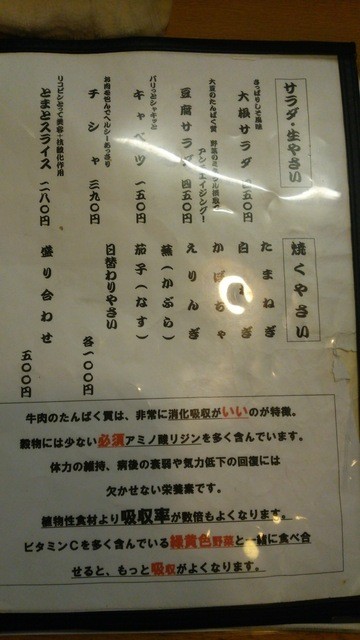 サラダ・生やさい
さっぱりしそ風味
大根サラダ 四五〇円
大豆のたんぱく質 野菜の
アンチエイジング!
豆腐サラダ 四五〇円
パリっとシャキッと
キャベツ 一五〇円
お肉を包んでヘルシーあっさり
チシャ 三九〇円
リコピンとって美容+抗酸化作用
とまとスライス 二八〇円
焼くやさい
たまねぎ
白ねぎ
かぼちゃ
えりんぎ
蕪(かぶら)
茄子(なす)
日替わりやさい
各一〇〇円
盛り合わせ
五〇〇円
牛肉のたんぱく質は、非常に消化吸収がいいのが特徴。
穀物には少ない必須アミノ酸リジンを多く含んでいます。
体力の維持、病後の衰弱や気力低下の回復には
欠かせない栄養素です。
植物性食材より吸収率が数倍もよくなります。
ビタミンCを多く含んでいる緑黄色野菜と一緒に食べ合
せると、もっと吸収がよくなります。